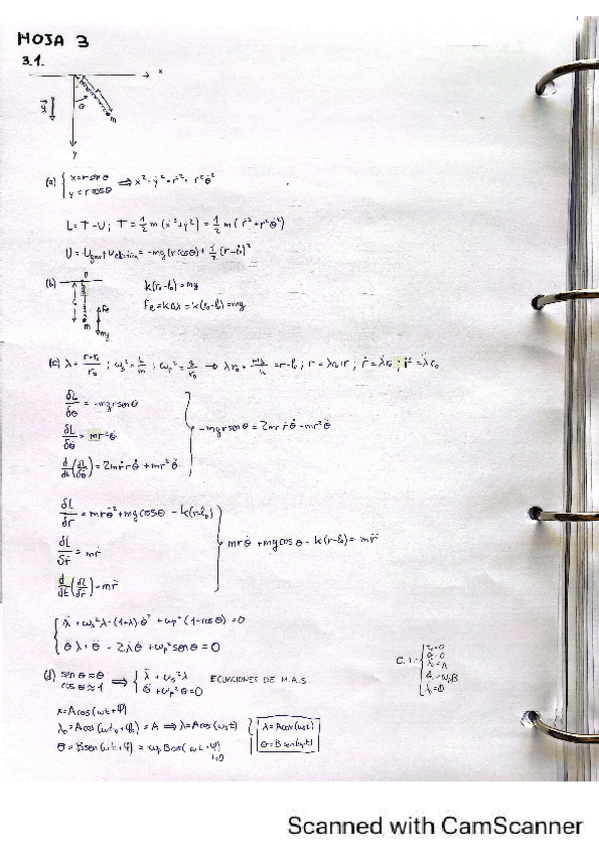 HOJA 3
3.1.
x
g θ r m
y
(a) { x=r senθ
y=r cosθ ⇒ ẋ²+ẏ²=ṙ²+r²θ̇²
L=T-U; T=½m(ẋ²+ẏ²)=½m(ṙ²+r²θ̇²)
U=Ugrav+Uelástica=-mg(r cosθ)+½(r-l₀)²
(b) k(r₀-l₀)=mg
Fe=kΔx=k(r₀-l₀)=mg
Fe
m
mg
(c) λ=(r-r₀)/r₀ ; ωs²=k/m ; ωp²=g/r₀ → λr₀ = r-r₀ ; ṙ=λ̇r₀ ; r̈=λ̈r₀
δL/δθ=-mgr senθ
δL/δθ̇=mr²θ̇
d/dt(δL/δθ̇)=2mṙrθ̇+mr²θ̈
-mgr senθ=2mrṙθ̇+mr²θ̈
δL/δr=mrθ̇²+mg cosθ-k(r-l₀)
δL/δṙ=mṙ
d/dt(δL/δṙ)=mr̈
mrθ̇²+mg cosθ-k(r-l₀)=mr̈
λ̈+ωs²λ-(1+λ)θ̇²+ωp²(1-cosθ)=0
θ̈λ+θ̈+2λ̇θ̇+ωp²senθ=0
C.I.:
(d) senθ≈θ
cosθ≈1 ⇒ { λ̈+ωs²λ
θ̈+ωp²θ=0 ECUACIONES DE M.A.S.
x=Acos(ωt+φ)
λ₀=Acos(ωt₀+φ)=A ⇒ λ=Acos(ωst)
λ=Acos(ωst)
θ=Bsen(ωpt)
θ̇=Bsen(ωt+φ)=ωpBcos(ωt+φ)
Scanned with CamScanner